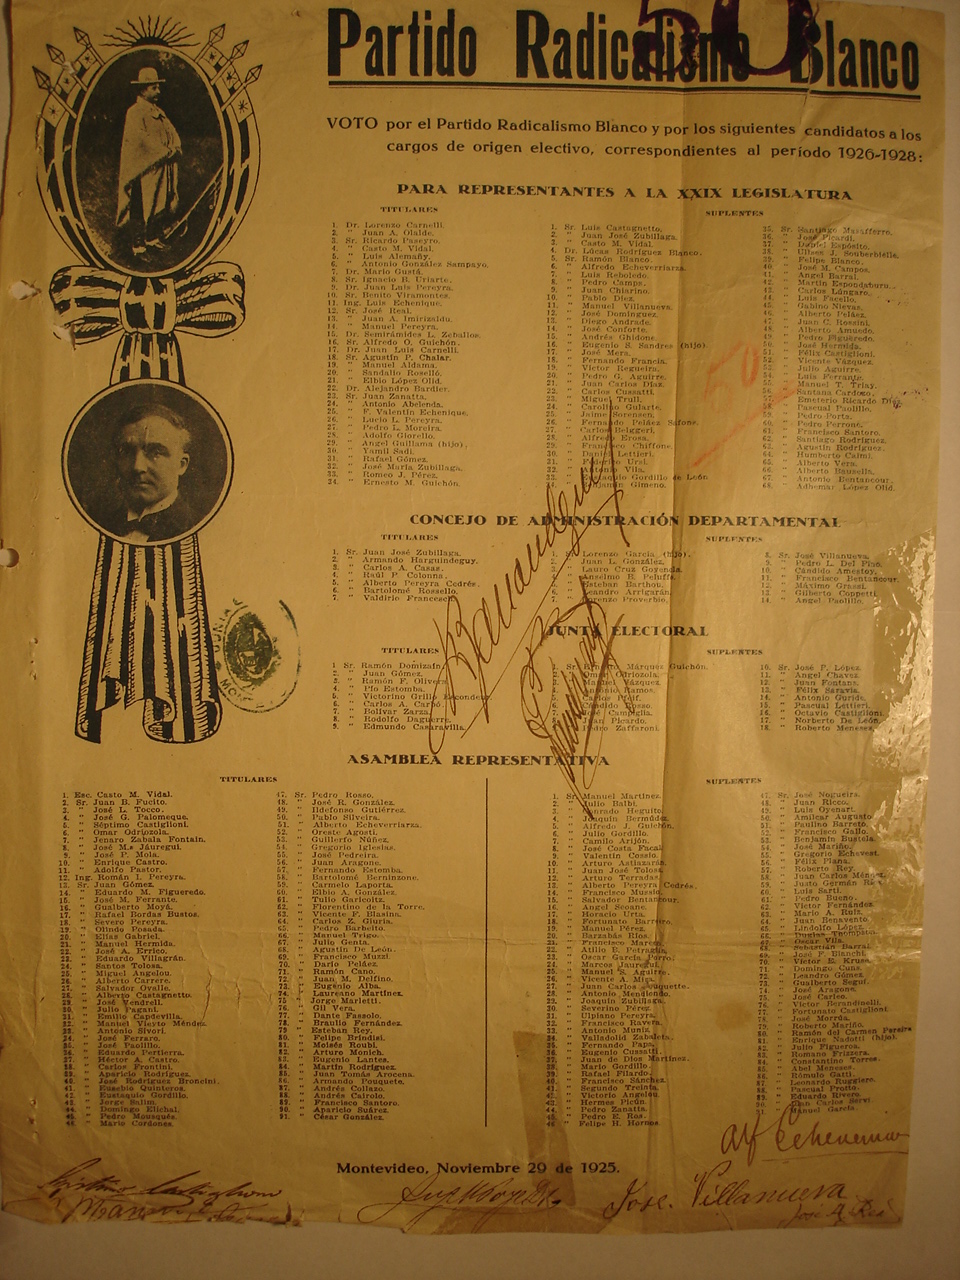 50
Partido Radicalismo Blanco
VOTO por el Partido Radicalismo Blanco y por los siguientes candidatos a los
cargos de origen electivo, correspondientes al período 1926-1928:
PARA REPRESENTANTES A LA XXIX LEGISLATURA
TITULARES
1. Dr. Lorenzo Carnelli.
2. " Juan A. Olalde.
3. Sr. Ricardo Paseyro.
4. " Casto M. Vidal.
5. " Luis Alemañy.
6. " Antonio González Sampayo.
7. Dr. Mario Gustá.
8. Sr. Ignacio B. Uriarte.
9. Dr. Juan Luis Pereyra.
10. Sr. Benito Viramontes.
11. Ing. Luis Echenique.
12. Sr. José Real.
13. " Juan A. Imirizaldu.
14. " Manuel Pereyra.
15. Dr. Semirámides L. Zeballos.
16. Sr. Alfredo O. Guichón.
17. Dr. Juan Luis Carnelli.
18. Sr. Agustín P. Chalar.
19. " Manuel Aldama.
20. " Sandalio Roselló.
21. " Elbio López Olid.
22. Dr. Alejandro Bardier.
23. Sr. Juan Zanatta.
24. " Antonio Abelenda.
25. " F. Valentín Echenique.
26. " Lucio L. Pereyra.
27. " Pedro L. Moreira.
28. " Adolfo Giorello.
29. " Angel Guillama (hijo).
30. " Yamil Sadi.
31. " Rafael Gómez.
32. " José María Zubillaga.
33. " Romeo J. Pérez.
34. " Ernesto M. Guichón.
SUPLENTES
1. Sr. Luis Castagnetto.
2. " Juan José Zubillaga.
3. " Casto M. Vidal.
4. Dr. Lucas Rodríguez Blanco.
5. Sr. Ramón Blanco.
6. " Alfredo Echeverriarza.
7. " Luis Reboledo.
8. " Pedro Camps.
9. " Juan Chiarino.
10. " Pablo Díez.
11. " Manuel Villanueva.
12. " José Domínguez.
13. " Diego Andrade.
14. " José Conforte.
15. " Andrés Ghidone.
16. " Eugenio S. Sandres (hijo).
17. " José Mera.
18. " Fernando Francia.
19. " Víctor Regueira.
20. " Pedro G. Aguirre.
21. " Juan Carlos Díaz.
22. " Carlos Cussatti.
23. " Miguel Trull.
24. " Carolino Gularte.
25. " Jaime Sorensen.
26. " Fernando Peláez Safone.
27. " Carlos Belggeri.
28. " Alfredo Erosa.
29. " Francisco Chiffone.
30. " Daniel Lettieri.
31. " Federico Ursi.
35. Sr. Santiago Masafferro.
36. " José Picardi.
37. " Daniel Espósito.
38. " Ulises J. Souberbielle.
39. " Felipe Blanco.
40. " José M. Campos.
41. " Angel Barral.
43. " Carlos Lúngaro.
44. " Luis Facello.
45. " Gabino Nievas.
46. " Alberto Peláez.
47. " Juan C. Rossini.
48. " Alberto Amuedo.
49. " Pedro Figueredo.
50. " José Hermida.
51. " Félix Castiglioni.
52. " Vicente Vázquez.
53. " Julio Aguirre.
54. " Luis Ferrante.
55. " Manuel T. Triay.
56. " Santana Cardozo.
57. " Emeterio Ricardo Díez.
58. " Pascual Paolillo.
59. " Pedro Porta.
60. " Pedro Perroné.
61. " Francisco Santoro.
62. " Santiago Rodríguez.
63. " Agustín Rodríguez.
64. " Humberto Calmi.
65. " Alberto Vera.
66. " Alberto Bausella.
67. " Antonio Bentancour.
68. " Adhemar López Olid.
50
CONCEJO DE ADMINISTRACIÓN DEPARTAMENTAL
TITULARES
1. Sr. Juan José Zubillaga.
2. " Armando Harguindeguy.
3. " Carlos A. Casas.
4. " Raúl P. Colonna.
5. " Alberto Pereyra Cedrés.
6. " Bartolomé Rossello.
7. " Valdirio Francesch
SUPLENTES
1. Sr. Lorenzo García (hijo).
2. " Juan L. González.
3. " Lauro Cruz Goyenola
4. " Anselmo B. Peluffo.
5. " Esteban Barthou.
6. " Leandro Arrigarán.
7. " Lorenzo Proverbio.
8. Sr. José Villanueva.
9. " Pedro L. Del Pino.
10. " Cándido Amestoy.
11. " Francisco Bentancour.
12. " Máximo Grassi.
13. " Gilberto Coppetti.
14. " Angel Paolillo.
JUNTA ELECTORAL
TITULARES
1 Sr. Ramón Domizain
2. " Juan Gómez.
3. " Ramón F. Olivera
4. " Pío Estomba.
6. " Carlos A. Carbó.
7. " Bolívar Zarza.
8. " Rodolfo Daguerre.
9. " Edmundo Casaravilla.
SUPLENTES
3. " Manuel Vázquez
4. " Antonio Ramos.
8. " Juan Picardo.
9. " Pedro Zaffaroni.
10. Sr. José P. López.
11. " Angel Chavez.
12. " Juan Fontans.
13. " Félix Saravia.
14. " Antonio Gurida.
15. " Pascual Lettieri.
16. " Octavio Castiglioni.
17. " Norberto De León.
18. " Roberto Meneses.
ASAMBLEA REPRESENTATIVA
TITULARES
1. Esc. Casto M. Vidal.
2. Sr. Juan B. Fucito.
3. " José L. Tocco.
4. " José G. Palomeque.
5. " Séptimo Castiglioni.
6. " Omar Odriozola.
7. " Jenaro Zabala Fontain.
8. " José M.a Jáuregui.
9. " José P. Mola.
10. " Enrique Castro.
11. " Adolfo Pastor.
12. Ing. Román L. Pereyra.
13. Sr. Juan Gómez.
14. " Eduardo M. Figueredo.
15. " José M. Ferrante.
16. " Gualberto Moyá.
17. " Rafael Bordas Bustos.
18. " Severo Pereyra.
19. " Olindo Posada.
20. " Elías Gabriel.
21. " Manuel Hermida.
22. " José A. Errico.
23. " Eduardo Villagrán.
24. " Santos Tolosa.
25. " Miguel Angelou.
26. " Alberto Carrere.
27. " Salvador Ovalle.
28. " Alberto Castagnetto.
29. " José Vendrell.
30. " Julio Pagani.
31. " Emilio Capdevilla.
32. " Manuel Vieyto Méndez
33. " Antonio Sívori.
34. " José Ferraro.
35. " José Paolillo.
36. " Eduardo Pertierra.
37. " Héctor A. Castro.
38. " Carlos Frontini.
39. " Aparicio Rodríguez.
40. " José Rodríguez Broncini.
41. " Eusebio Quinteros.
42. " Eustaquio Gordillo.
43. " Jorge Salim.
44. " Domingo Elichal.
45. " Pedro Mousqués.
46. " Mario Cordones.
47. Sr. Pedro Rosso.
48. " José R. González.
49. " Ildefonso Gutiérrez.
50. " Pablo Silveira.
51. " Alberto Echeverriarza.
52. " Oreste Agosti.
53. " Guillerfo Núñez.
54. " Gregorio Iglesias.
55. " José Pedreira.
56. " Juan Aragone.
57. " Fernando Estomba.
58. " Bartolomé Berninzone.
59. " Carmelo Laporta.
60. " Elbio A. González.
61. " Tulio Garicoltz.
62. " Florentino de la Torre.
63. " Vicente F. Blasina.
64. " Carlos Z. Gluria.
65. " Pedro Barbeito.
66. " Manuel Trigo.
67. " Julio Genta.
68. " Agustín De León.
69. " Francisco Muzzi.
70. " Darío Peláez.
71. " Ramón Cano.
72. " Juan M. Delfino.
73. " Eugenio Alba.
74. " Laureano Martínez.
75. " Jorge Marletti.
76. " Gil Vera.
77. " Dante Fassolo.
78. " Braulio Fernández.
79. " Esteban Rey.
80. " Felipe Brindisi.
81. " Moisés Roubi.
82. " Arturo Monich.
83. " Eugenio Lantes.
84. " Martín Rodríguez.
85. " Juan Tomás Arocena.
86. " Armando Pouquete.
87. " Andrés Collazo.
88. " Andrés Cairolo.
89. " Francisco Santoro.
90. " Aparicio Suárez.
91. " César González.
SUPLENTES
1. Sr. Manuel Martínez.
2. " Julio Balbi.
3. " Conrado Heguito.
4. " Joaquín Bermúdez.
5. " Alfredo J. Guichón.
6. " Julio Gordillo.
7. " Camilo Arijón.
8. " José Costa Facal.
9. " Valentín Cossio.
10. " Arturo Astiazarán.
11. " Juan José Tolosa
12. " Arturo Terradas.
13. " Alberto Pereyra Cedrés.
14. " Francisco Mussio.
15. " Salvador Bentancour.
16. " Angel Seoane.
17. " Horacio Urta.
18. " Fortunato Barreiro.
19. " Manuel Pérez.
20. " Barzabás Ríos.
21. " Francisco Marco.
22. " Atilio B. Petraglia.
23. " Oscar García Porro.
24. " Marcos Jauregui.
25. " Manuel S. Aguirre.
28. " Antonio Mendiondo.
29. " Joaquín Zubillaga.
30. " Severino Pérez.
31. " Ulpiano Pereyra.
32. " Francisco Ravera.
33. " Antonio Muniz.
34. " Valladolid Zabaleta.
35. " Fernando Papa.
36. " Eugenio Cussatti.
37. " Juan de Dios Martínez.
38. " Mario Gordillo.
39. " Rafael Filardo.
40. " Francisco Sánchez.
41. " Segundo Treinta.
42. " Victorio Angelou.
43. " Hermes Picún.
44. " Pedro Zanatta.
45. " Pedro E. Ros.
46. " Felipe H. Hornos.
47. Sr. José Nogueira.
48. " Juan Ricco.
49. " Luis Oyenart.
50. " Amílcar Augusto
51. " Paulino Barreto.
52. " Francisco Gallo.
53. " Benjamín Bustelo.
54. " José Mariño.
55. " Gregorio Echevest.
56. " Félix Plana.
57. " Roberto Rey.
58. " Juan Carlos Méndez.
60. " Luis Sarti.
61. " Pedro Bueno.
62. " Víctor Fernández.
63. " Mario A. Ruiz.
64. " Juan Benavento.
65. " Lindolfo López.
67. " Oscar Vila.
68. " Sebastián Barral.
69. " José P. Bianchi.
70. " Víctor E. Kruss.
71. " Domingo Cuns.
72. " Leandro Gómez.
73. " Gualberto Seguí.
74. " José Aragone.
75. " José Carleo.
76. " Víctor Berardinelli.
77. " Fortunato Castiglioni.
79. " Roberto Mariño.
80. " Ramón del Carmen Pereira
81. " Enrique Nadotti (hijo).
82. " Julio Figueroa.
83. " Romano Frizzera.
84. " Constantino Torres.
85. " Abel Meneses.
86. " Rómulo Gatti.
87. " Leonardo Ruggiero.
88. " Pascual Proito.
89. " Eduardo Rivero.
91. " Manuel García.
Alf Echeverria
Montevideo, Noviembre 29 de 1925.
José Villanueva